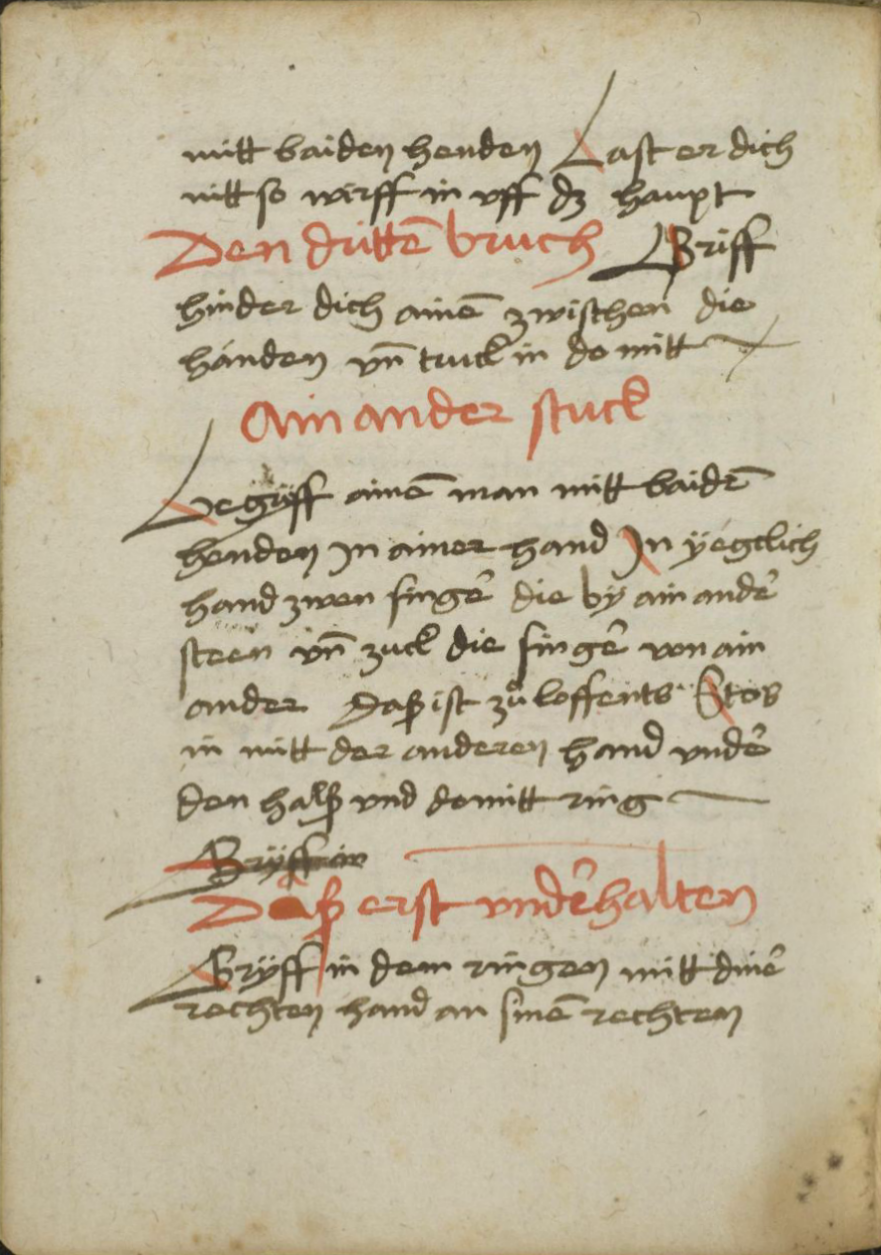 mitt baiden henden Last er dich
nitt so wirff in vff dz haupt
Den dritte͂ bruch Griff
hinder dich aine͂ zwischen die
händen vn͂ truck in do mitt
Ain ander stuck
Begriff aine͂ man mitt baide͂
henden In ainer hand In yeglich
hand zwen finger die by ain ander
steen vn͂ zuck die finger von ain
ander Daß ist zů loffents Stos
in mitt der anderen hand vnder
den halß vnd domitt ring
Gryff in
Daß erst vnderhalten
Gryff in dem ringen mitt diner
rechten hand an sine͂ rechten